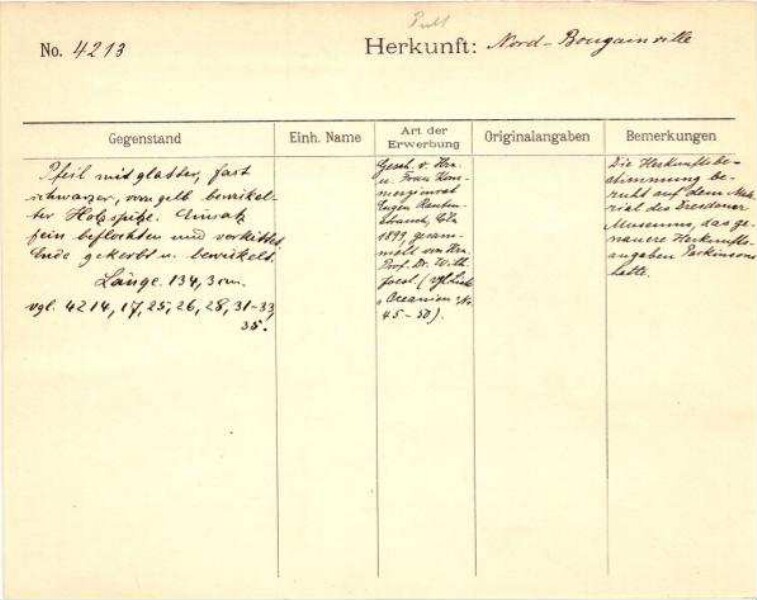 Pult
No. 4213
Herkunft: Nord-Bougainville
Gegenstand
Einh. Name
Art der
Erwerbung
Originalangaben
Bemerkungen
Pfeil mit glatter, fast
schwarzer, vorn gelb bewickel-
ter Holzspitze. Einsatz
fein beflochten und verkittet.
Ende gekerbt u. bewickelt.
Länge. 134,3 cm.
vgl. 4214, 17, 25, 26, 28, 31-33,
35.
Gesch. v. Hrn.
u. Frau Kom-
merzienrat
Eugen Rauten-
strauch, Cöln
1899, gesam-
melt von Hrn.
Prof. Dr. Wilh.
Joest. (vgl.
Oceanien No
45-50).
Die Herkunftsbe-
stimmung be-
ruht auf dem Mate-
rial des Dresdener
Museums, das ge-
nauere Herkunfts-
angaben Parkinsons
hatte.